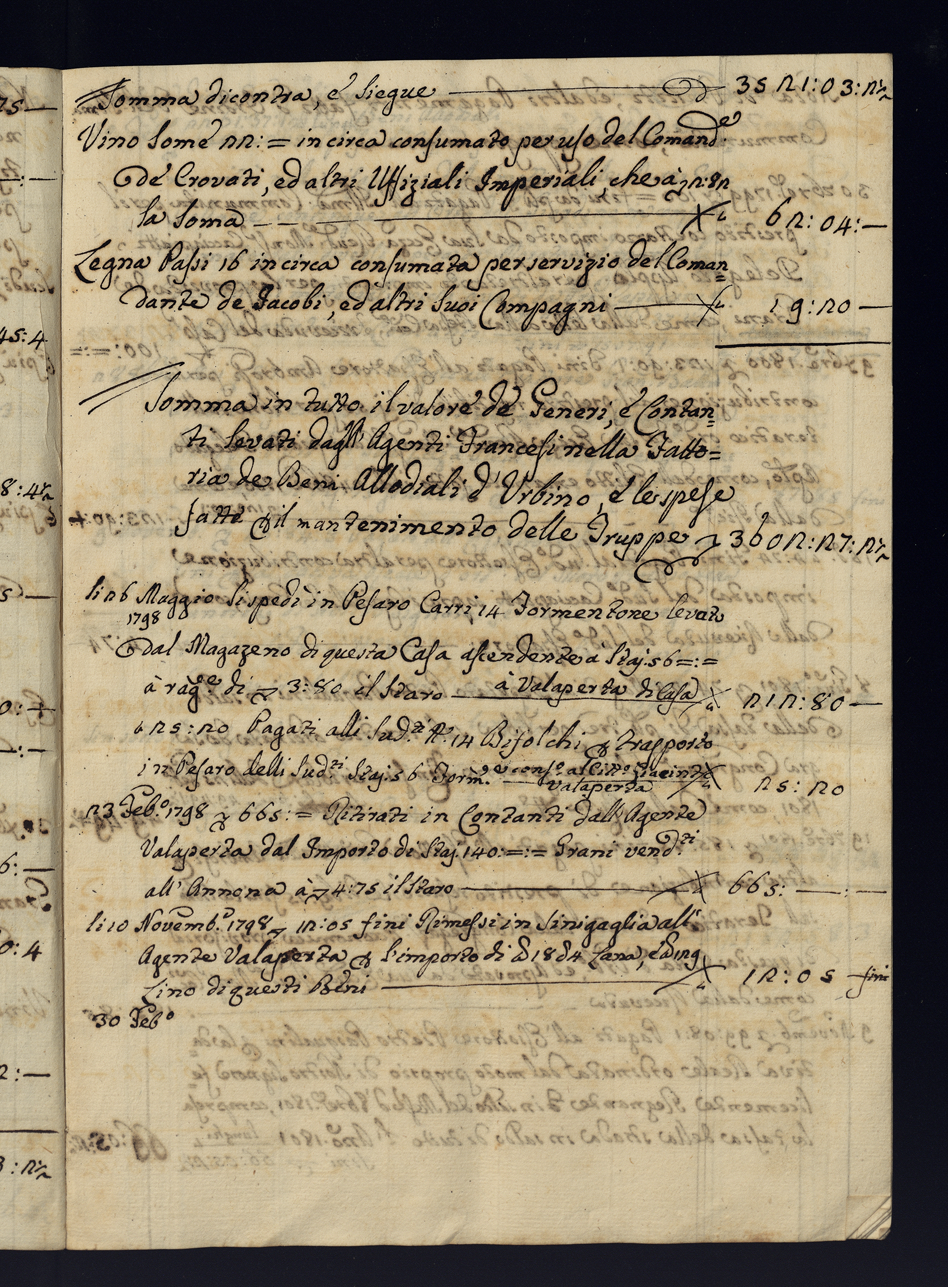 Somma dicontra, e' Siegue 3521:03:2½
Vino Some 22:= in circa consumato per uso del Comand.e
de' Crovati, ed altri Uffiziali Imperiali, che à 2:82
la Soma 62:04:—
Legna Passi 16 in circa consumata per servizio del Coman=
dante de Jacobi, ed altri Suoi Compagni 19:20 —
Somma in tutto il valore de' Generi, e' Contan=
ti levati dagl' Agenti Francesi nella Fatto=
ria de Beni Allodiali d' Urbino, e' le spese
fatte p il mantenimento delle Truppe 3602:27:2½
li 26 Maggio Si spedì in Pesaro Carri 14 Formentone levato
1798
dal Magazeno di questa Casa ascendente à Staj. 56=:=
à rag.e di 3:80 il Staro à Valaperta di Casa 212:80 —
25:20 Pagati alli Sud.ti N.o 14 Bifolchi p trasporto
in Pesaro delli Sud.ti Staj. 56 Form.e Valaperta 25:20
23 Feb.o 1798 665:= Ritirati in Contanti dall' Agente
Valaperta dal Importo di Staj. 140:=:= Grani vend.ti
all' Annona à 4:75 il Staro 665:—:—
li 10 Novemb.o 1798 12:05 fini Rimessi in Sinigaglia all'
Agente Valaperta p l'importo di Lana, ed
Lino di questi Beni 12:05 — fini
30 Feb.o